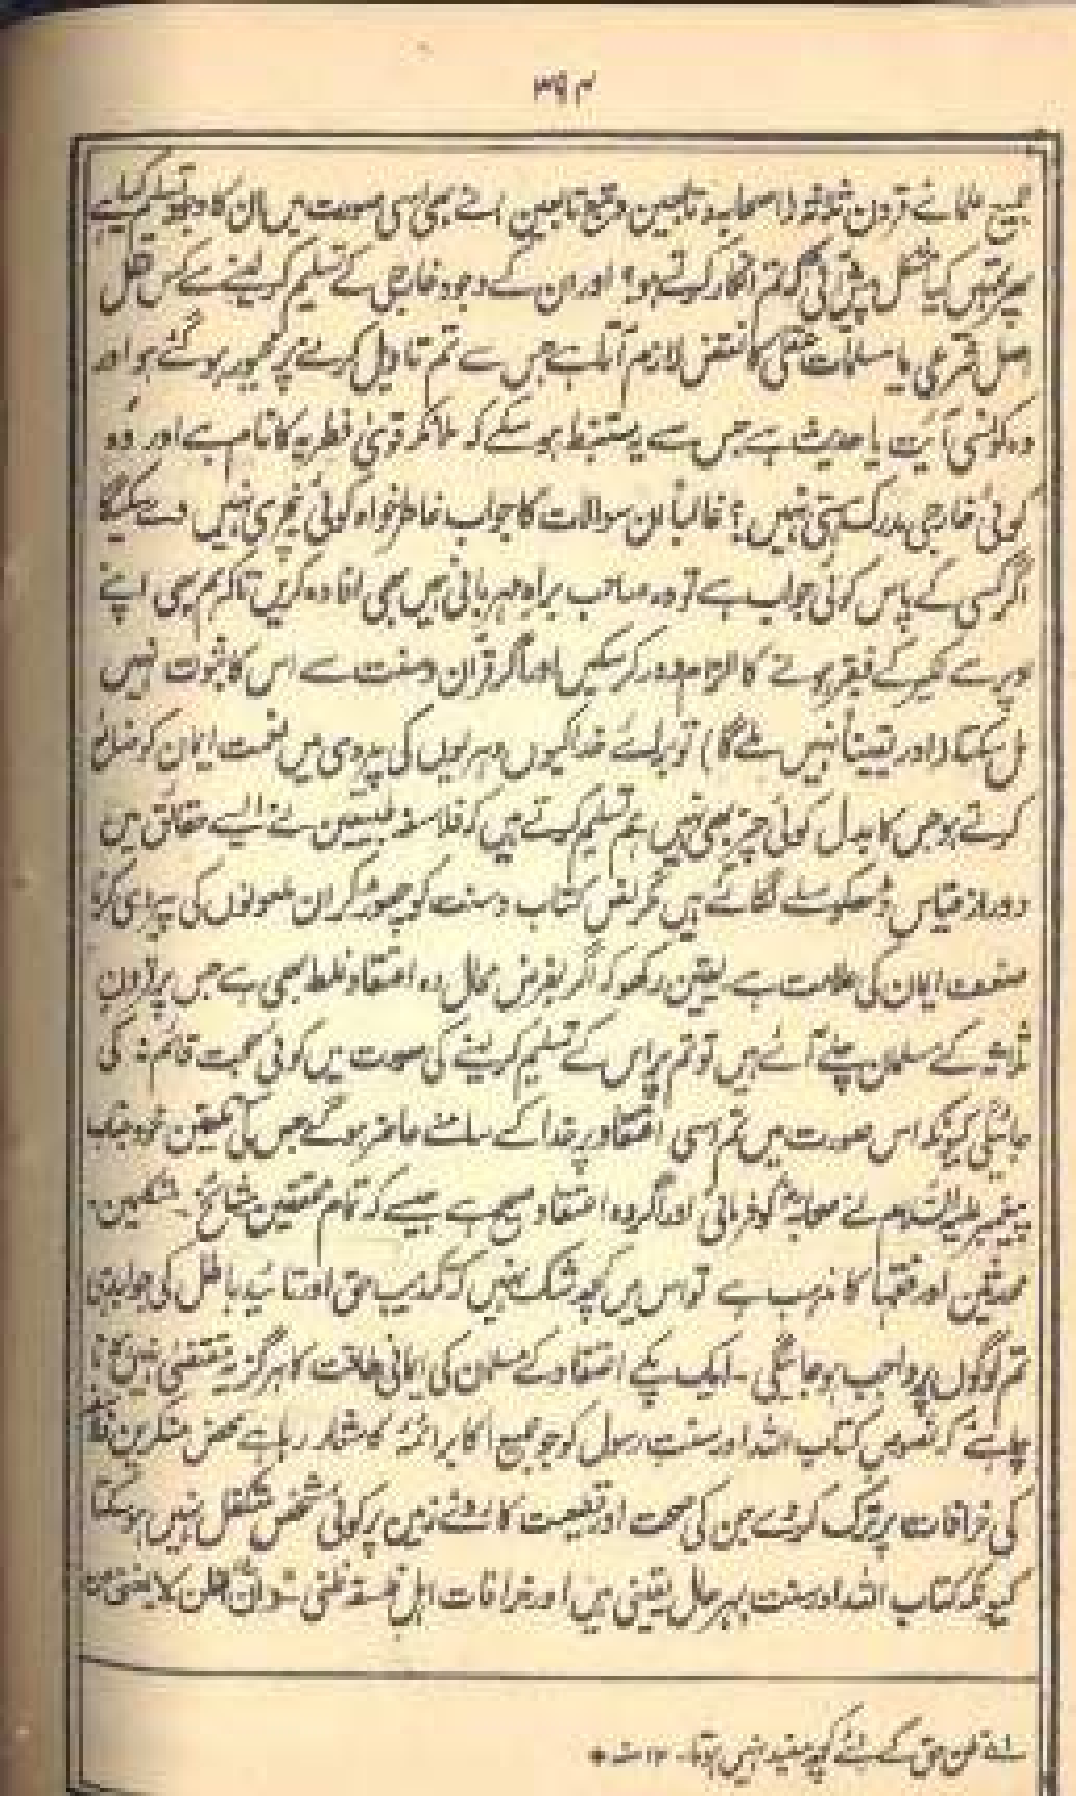 ۳۹۴
جمیع علمائے قرون ثلاثہ (صحابہ و تابعین و تبع تابعین) نے بھی اسی صورت میں ان کا وجود تسلیم کیا ہے
پھر تمہیں کیا مشکل پیش آئی کہ تم انکار کرتے ہو؟ اور ان کے وجود خارجی کے تسلیم کر لینے سے کس
اصل شرعی یا مسلمات عقلی کا نقض لازم آتا ہے جس سے تم تاویل کرنے پر مجبور ہو گئے ہو اور
وہ کونسی آیت یا حدیث ہے جس سے یہ مستنبط ہو سکے کہ ملائکہ قوٰی فطریہ کا نام ہے اور وہ
کوئی خارجی مدرک ہستی نہیں؟ غالباً ان سوالات کا جواب خاطر خواہ کوئی نیچری نہیں دے سکیگا
اگر کسی کے پاس کوئی جواب ہے تو وہ صاحب براہ مہربانی ہمیں بھی افادہ کریں تاکہ ہم بھی اپنے
اوپر سے لکیر کے فقیر ہونے کا الزام دور کر سکیں اور اگر قرآن و سنت سے اس کا ثبوت نہیں
مل سکتا (اور یقیناً نہیں ملے گا) تو برائے خدا کیوں دہریوں کی پیروی میں نعمت ایمان کو ضائع
کرتے ہو جس کا بدل کوئی چیز بھی نہیں ہم تسلیم کرتے ہیں کہ فلاسفہ طبیعین نے ایسے حقائق میں
دور از قیاس ڈھکوسلے لگائے ہیں مگر نص کتاب و سنت کو چھوڑ کر ان ملعونوں کی پیروی کرنا
ضعف ایمان کی علامت ہے۔ یقین رکھو کہ اگر بفرض محال وہ اعتقاد غلط بھی ہے جس پر قرون
ثلاثہ کے مسلمان چلے آئے ہیں تو تم پر اس کے تسلیم کر لینے کی صورت میں کوئی حجت قائم نہ کی
جائیگی کیونکہ اس صورت میں تم اسی اعتقاد پر خدا کے سامنے حاضر ہو گے جس کی تلقین خود جناب
پیغمبر علیہ السلام نے صحابہ کو فرمائی اور اگر وہ اعتقاد صحیح ہے جیسے کہ تمام محققین مشائخ۔ متکلمین۔
محدثین اور فقہا کا مذہب ہے تو اس میں کچھ شک نہیں کہ تکذیب حق اور تائید باطل کی جوابدہی
تم لوگوں پر واجب ہو جائیگی۔ ایک پکے اعتقاد کے مسلمان کی ایمانی طاقت کا ہرگز یہ مقتضٰی نہیں ہونا
چاہئے کہ نصوص کتاب اللہ اور سنت رسول کو جو جمیع اکابر ائمہ کا شعار رہا ہے محض منکرین
کی خرافات پر ترک کر دے جن کی صحت اور قطعیت کا روئے زمین پر کوئی شخص متکفل نہیں ہو سکتا
کیونکہ کتاب اللہ اور سنت بہر حال یقینی ہیں اور خرافات اہل فلسفہ ظنی وان الظن لا یغنی من
ظن حق کے لئے کچھ مفید نہیں ہوتا۔ ۱۲ منہ *